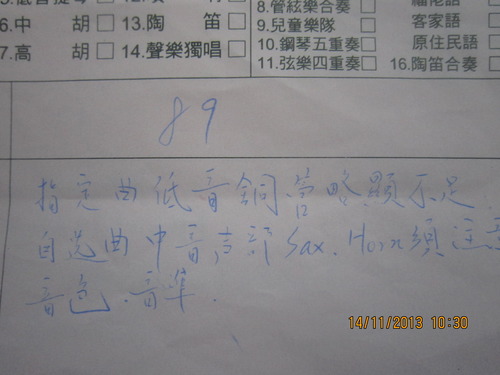 6.中 胡□ 13.陶 笛□
7.高 胡□ 14.聲樂獨唱□
8.管絃樂合奏□
9.兒童樂隊□ 客家語□
10.鋼琴五重奏□ 原住民語□
11.弦樂四重奏□ 16.陶笛合奏□
89
指定曲低音銅管略顯不足.
自选曲中音声部Sax、Horn須注意
音色、音準.
14/11/2013 10:30